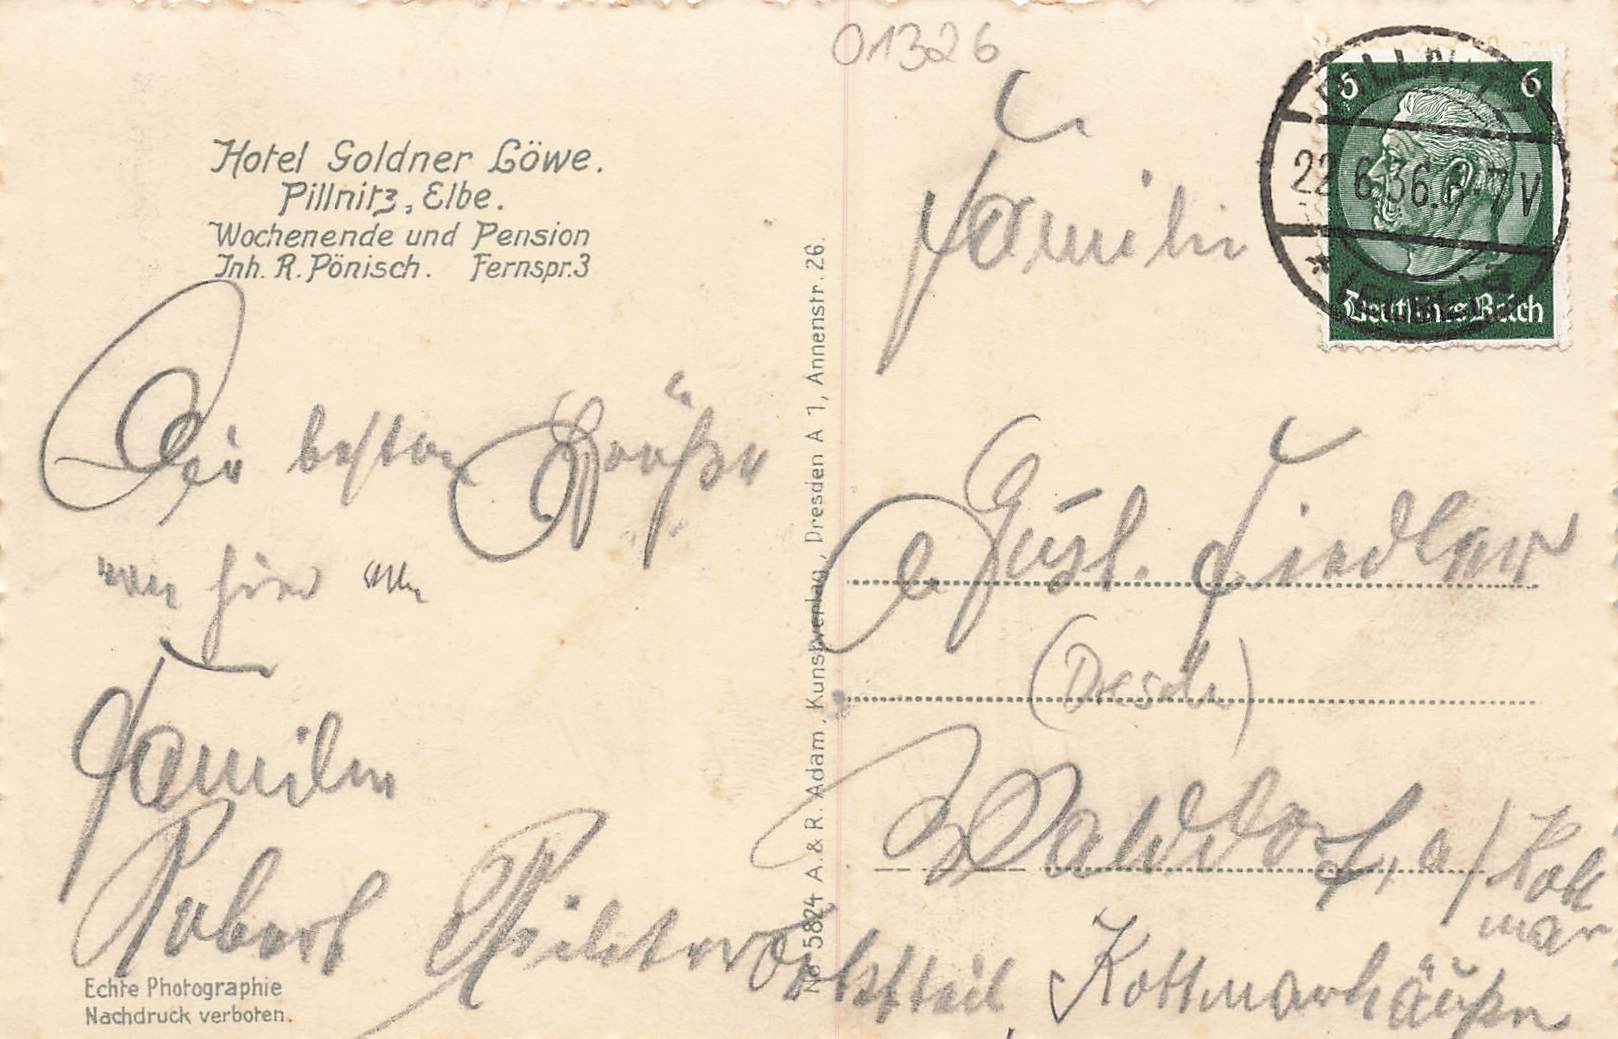 01326
Hotel Goldner Löwe.
Pillnitz, Elbe.
Wochenende und Pension
Inh. R. Pönisch. Fernspr. 3
5 6
22.6.36.6-7 V
Deutsches Reich
Die besten Grüße
von hier
Familie
Robert
Echte Photographie
Nachdruck verboten.
No 5824 A. & R. Adam, Kunstverlag, Dresden A 1, Annenstr. 26.
Familie
Gust. Fiedler
Walddorf, a/Kott
mar
Ortsteil Kottmarhäuser